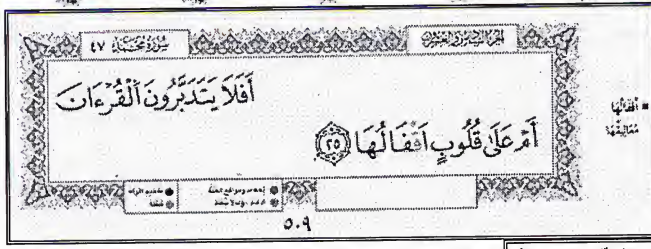 سُورَةُ مُحَمَّد ٤٧
الجزء السادس والعشرون
أَفَلَا يَتَدَبَّرُونَ ٱلْقُرْءَانَ
أَمْ عَلَىٰ قُلُوبٍ اَقْفَالُهَا ٢٥
■ أَقْفَالُهَا
مَغَالِيقُهَا
٥٠٩